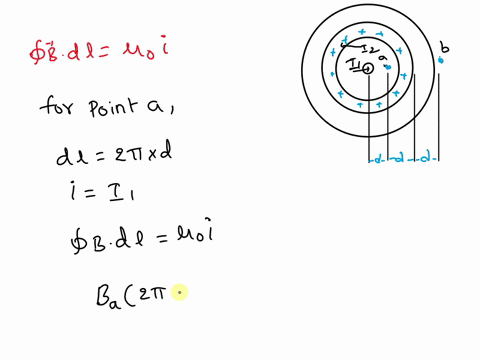 ∮B⃗.dl = μ₀i
for point a,
dl = 2π×d
i = I₁
∮B.dl = μ₀i
Bₐ(2π
I₂
a
I₁
b
d d d